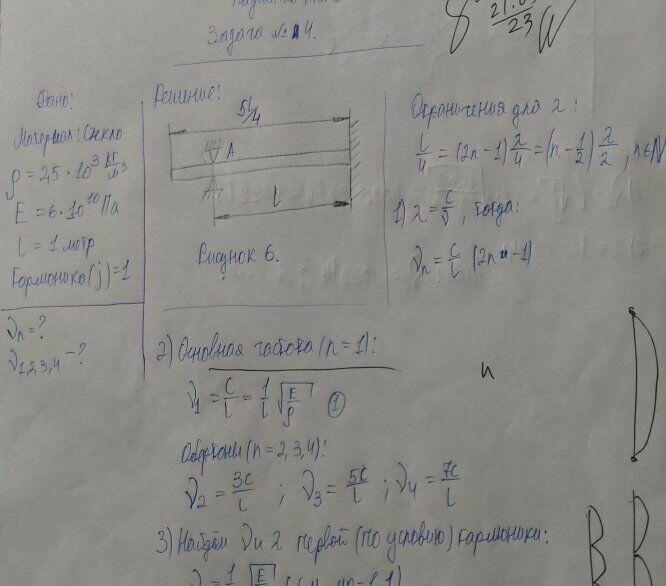 Задача № 14.
21.0
23
Дано:
Материал: Стекло
ρ = 2,5 · 10³ кг/м³
E = 6 · 10¹⁰ Па
l = 1 метр
Гармоника (j) = 1
νn = ?
ν1,2,3,4 – ?
Решение:
5l/4
A
l
Рисунок 6.
Ограничения для λ:
l/4 = (2n – 1) λ/4 = (n – 1/2) λ/2, n ∈ N
1) λ = c/ν, тогда:
νn = c/l (2n – 1)
2) Основная частота (n = 1):
ν1 = c/l = 1/l √E/ρ ①
Обертоны (n = 2, 3, 4):
ν2 = 3c/l ; ν3 = 5c/l ; ν4 = 7c/l
и
3) Найдём ν и λ первой (по условию) гармоники: